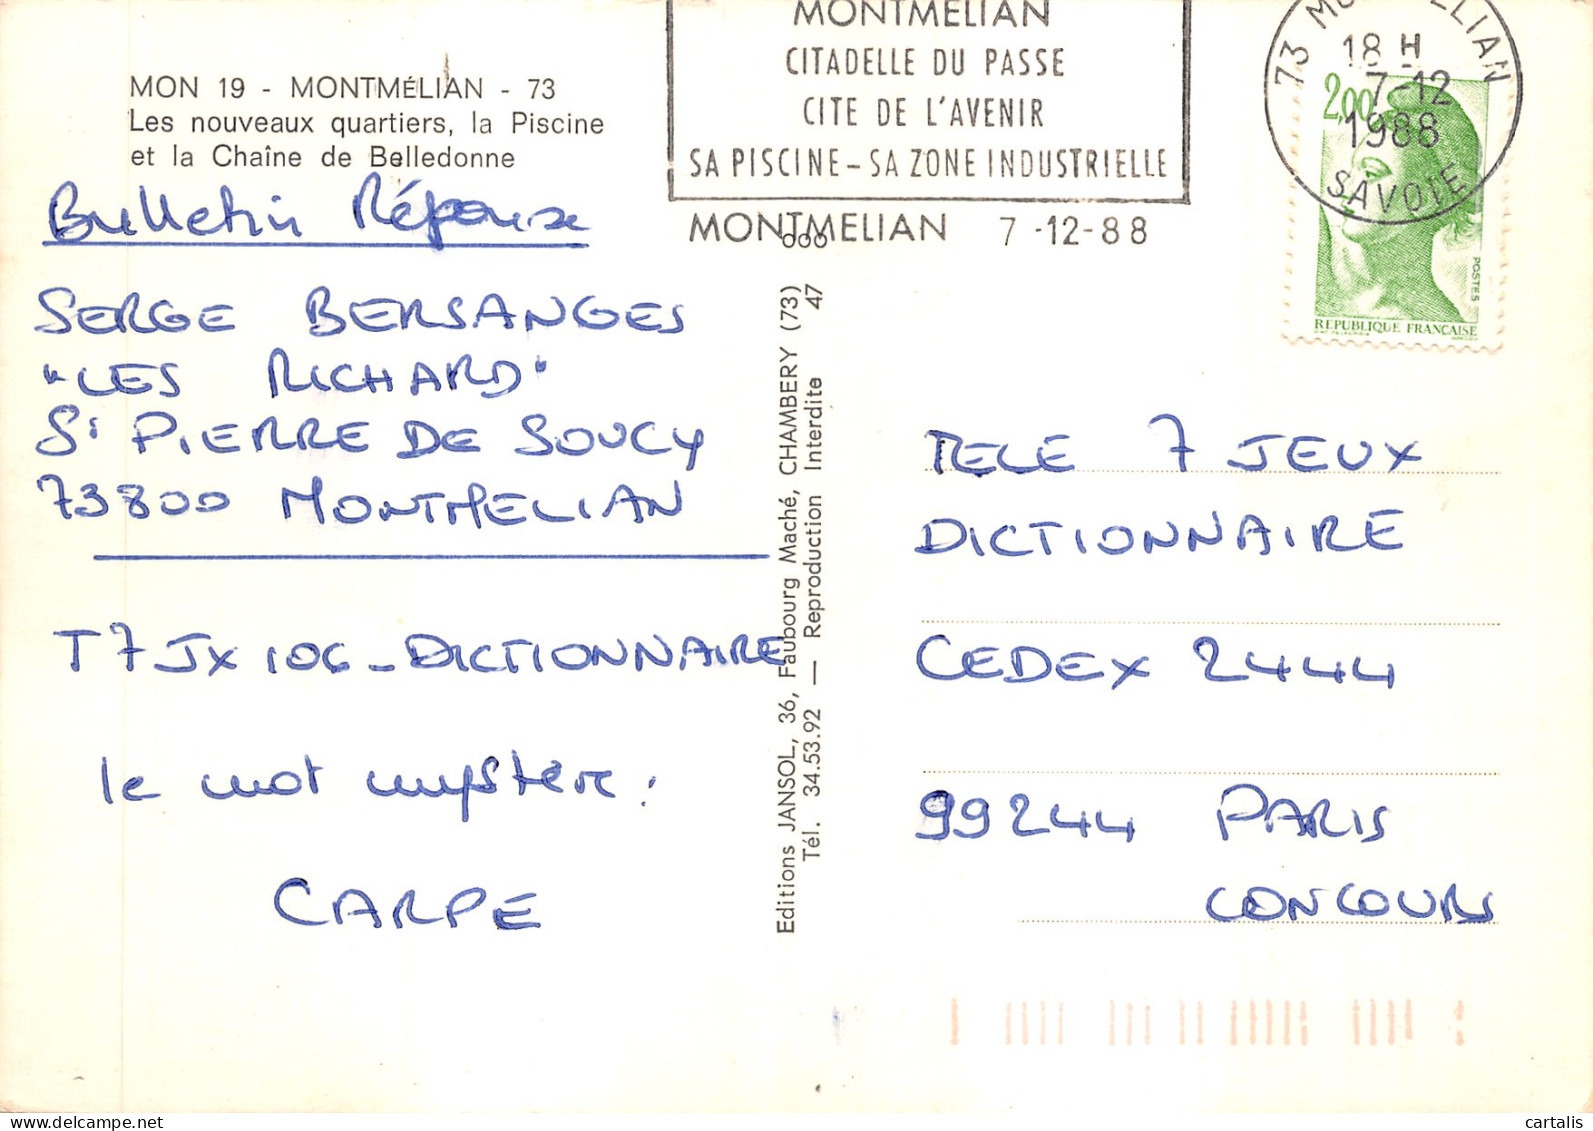 MON 19 - MONTMÉLIAN - 73
Les nouveaux quartiers, la Piscine
et la Chaîne de Belledonne
Bulletin Réponse
SERGE BERSANGES
"LES RICHARD"
St PIERRE DE SOUCY
73800 MONTMELIAN
T7JX 106 - DICTIONNAIRE
le mot mystère :
CARPE
MONTMELIAN
CITADELLE DU PASSE
CITE DE L'AVENIR
SA PISCINE - SA ZONE INDUSTRIELLE
MONTMELIAN 7 -12-88
73 MONTMELIAN
18 H
7-12
1988
SAVOIE
2,00
POSTES
REPUBLIQUE FRANÇAISE
Editions JANSOL, 36, Faubourg Maché, CHAMBERY (73)
Tél. 34.53.92 — Reproduction Interdite 47
TELE 7 JEUX
DICTIONNAIRE
CEDEX 2444
99244 PARIS
CONCOURS
delcampe.net
cartalis